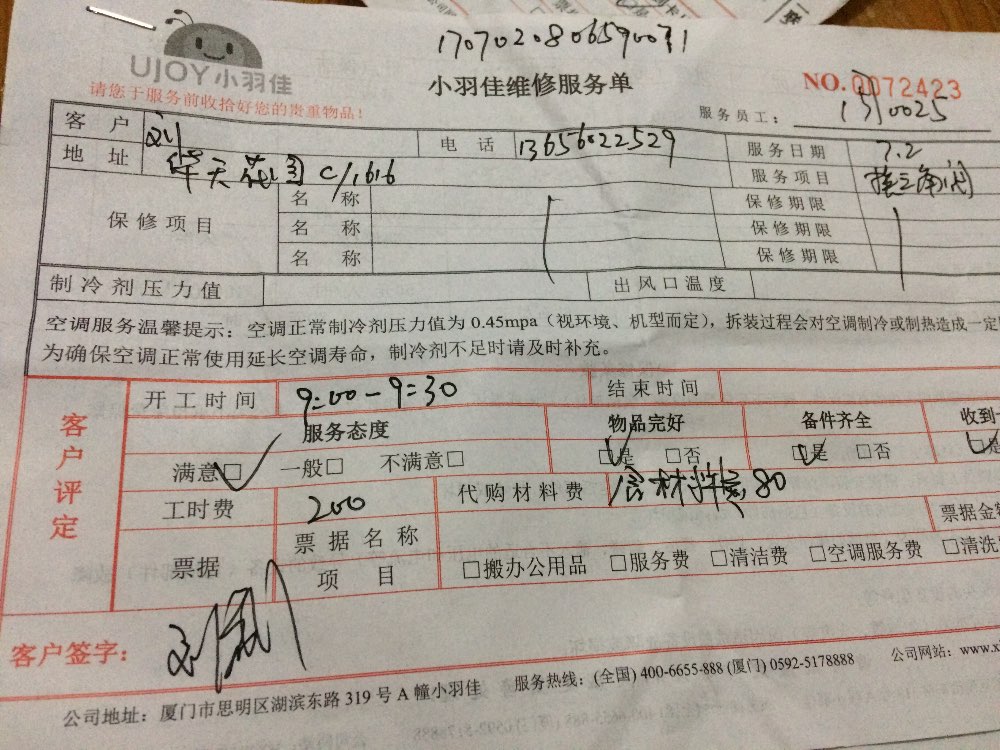 1707020806590031
UJOY小羽佳
小羽佳维修服务单
NO.0072423
请您于服务前收拾好您的贵重物品!
服务员工: 0025
客户 刘 电话 13656022529 服务日期 7.2
地址 华天花园 C/1616 服务项目 换三角阀
保修项目 名称 保修期限
名称 保修期限
名称 保修期限
制冷剂压力值 出风口温度
空调服务温馨提示: 空调正常制冷剂压力值为 0.45mpa（视环境、机型而定), 拆装过程会对空调制冷或制热造成一定
为确保空调正常使用延长空调寿命, 制冷剂不足时请及时补充。
客户评定
开工时间 9:00-9:30 结束时间
服务态度 物品完好 备件齐全 收到
满意□ 一般□ 不满意□ □是 □否 □是 □否 □是
工时费 200 代购材料费 含材料费80
票据 票据名称 票据金
项目 □搬办公用品 □服务费 □清洁费 □空调服务费 □清洗
客户签字: 刘
公司地址: 厦门市思明区湖滨东路 319 号 A 幢小羽佳 服务热线: (全国) 400-6655-888 (厦门) 0592-5178888 公司网站: www.x